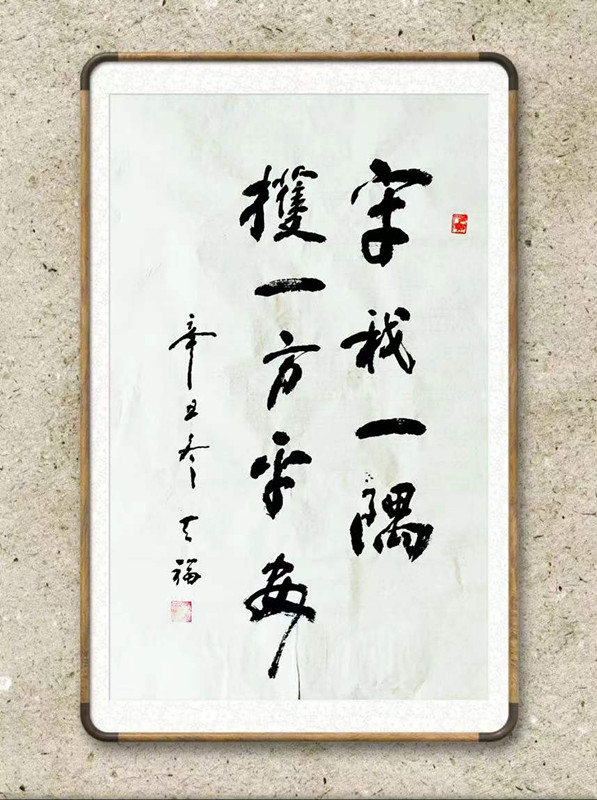 守我一隅
獲一方平安
辛丑冬天福